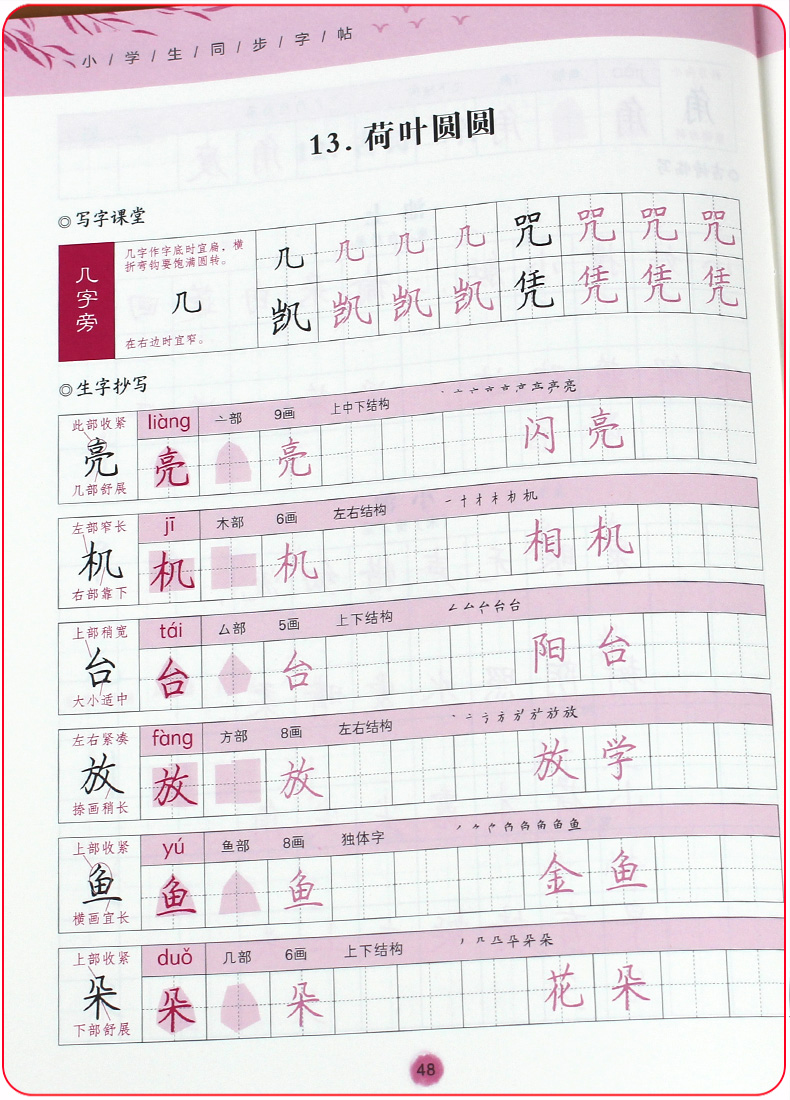 小/学/生/同/步/字/帖
13.荷叶圆圆
◎写字课堂
几字旁
几字作字底时宜扁，横
折弯钩要饱满圆转。
几
在右边时宜窄。
几 几 几 几 咒 咒 咒 咒
凯 凯 凯 凯 凭 凭 凭 凭
◎生字抄写
此部收紧 liàng 亠部 9画 上中下结构
亮 亮 亮 闪 亮
几部舒展
左部窄长 jī 木部 6画 左右结构
机 机 机 相 机
右部靠下
上部稍宽 tái 厶部 5画 上下结构
台 台 台 阳 台
大小适中
左右紧凑 fàng 方部 8画 左右结构
放 放 放 放 学
捺画稍长
上部收紧 yú 鱼部 8画 独体字
鱼 鱼 鱼 金 鱼
横画宜长
上部收紧 duǒ 几部 6画 上下结构
朵 朵 朵 花 朵
下部舒展
48